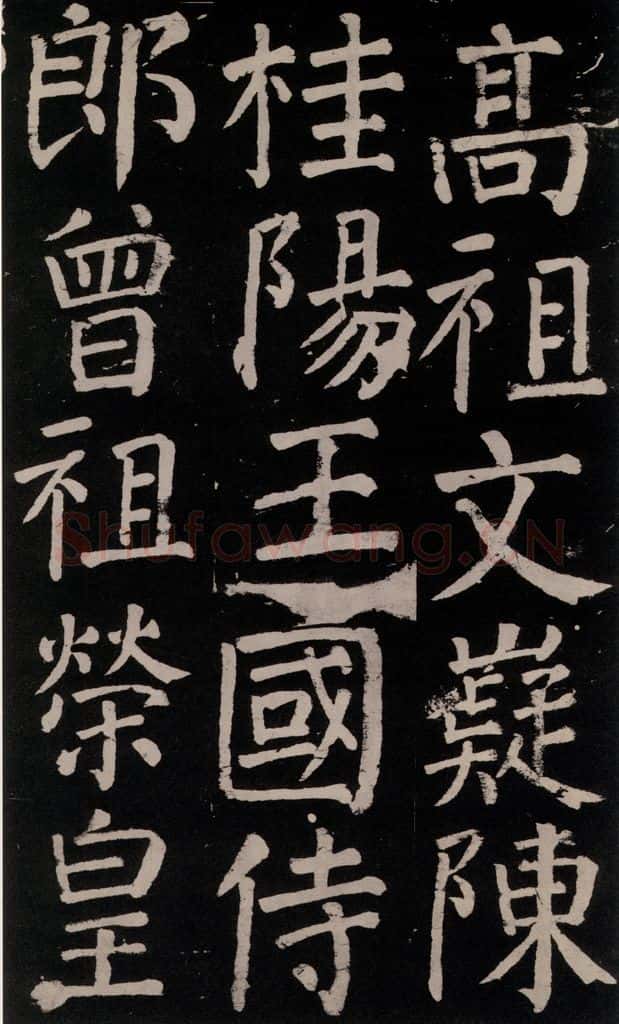 高祖文嶷陳
桂陽王國侍
郎曾祖榮皇
Shufawang.CN